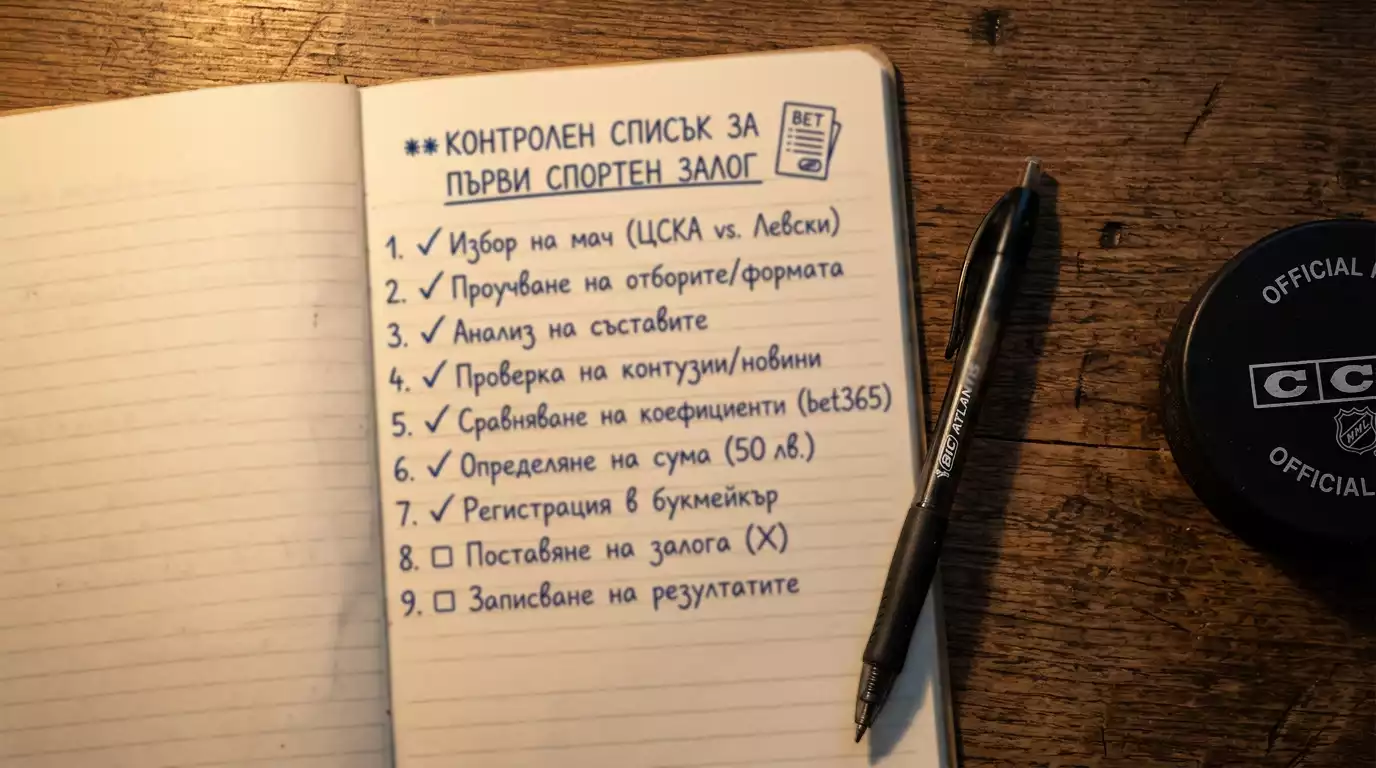 ** КОНТРОЛЕН СПИСЪК ЗА
ПЪРВИ СПОРТЕН ЗАЛОГ
BET
1. ✓ Избор на мач (ЦСКА vs. Левски)
2. ✓ Проучване на отборите/формата
3. ✓ Анализ на съставите
4. ✓ Проверка на контузии/новини
5. ✓ Сравняване на коефициенти (bet365)
6. ✓ Определяне на сума (50 лв.)
7. ✓ Регистрация в букмейкър
8. ☐ Поставяне на залога (X)
9. ☐ Записване на резултатите
BIC ATLANTIS
OFFICIAL
CC
OFFICIAL